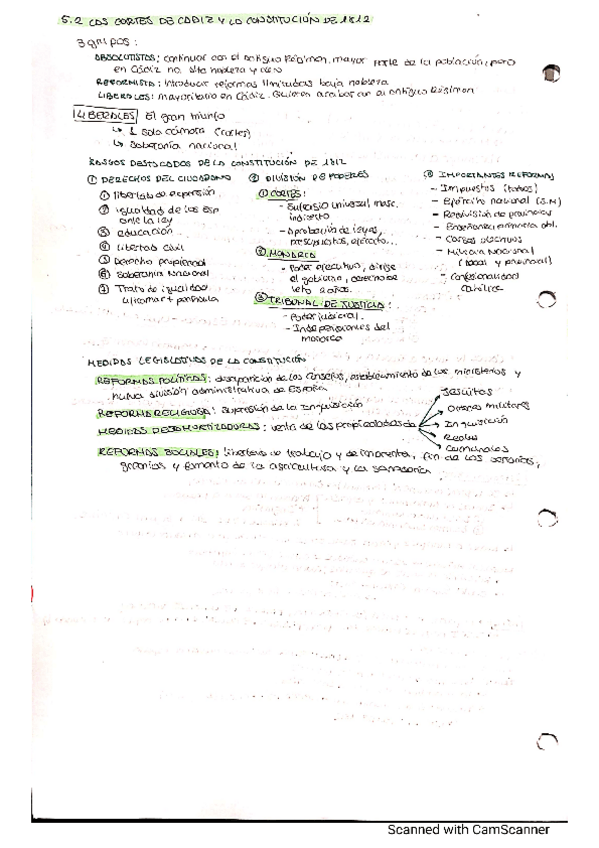 5.2 LAS CORTES DE CÁDIZ Y LA CONSTITUCIÓN DE 1812
3 grupos:
ABSOLUTISTAS: continuar con el antiguo Régimen, mayor parte de la población, pero
en Cádiz no. Alta nobleza y clero
REFORMISTA: introducir reformas limitadas baja nobleza
LIBERALES: mayoritario en Cádiz. Quieren acabar con el antiguo Régimen
LIBERALES El gran triunfo
↳ 1 sola cámara (cortes)
↳ Soberanía nacional
RASGOS DESTACADOS DE LA CONSTITUCIÓN DE 1812
① DERECHOS DEL CIUDADANO
① libertad de expresión
② igualdad de los esp
ante la ley
③ educación
④ libertad civil
⑤ Derecho propiedad
⑥ Soberanía Nacional
⑦ Trato de igualdad
ultramar + península
② DIVISIÓN DE PODERES
① CORTES:
- Sufragio universal masc.
indirecto
- Aprobación de leyes,
presupuestos, ejército...
② MONARCA
- Poder ejecutivo, dirige
el gobierno, derecho de
veto 2 años.
③ TRIBUNAL DE JUSTICIA:
- Poder judicial.
- Independientes del
monarca
③ IMPORTANTES REFORMAS
- Impuestos (todos)
- Ejército nacional (S.M)
- División de provincias
- Enseñanza primaria obl.
- Cargos
- Milicia Nacional
(local y provincial)
- Confesionalidad
católica
MEDIDAS LEGISLATIVAS DE LA CONSTITUCIÓN
REFORMAS POLÍTICAS: desaparición de los consejos, establecimiento de los ministerios y
nueva división administrativa de España
REFORMA RELIGIOSA: supresión de la Inquisición
MEDIDAS DESAMORTIZADORAS: venta de las propiedades de
Jesuitas
Ordenes militares
Inquisición
Reales
Comunales
REFORMAS SOCIALES: libertad de trabajo y de, fin de los señoríos,
gremios y fomento de la agricultura y la ganadería
Scanned with CamScanner